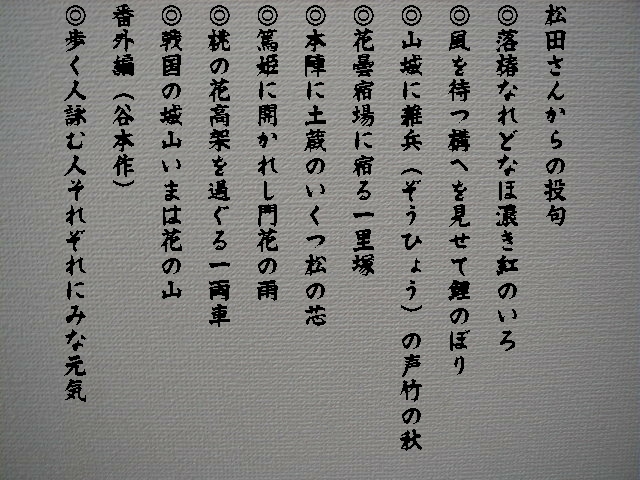 松田さんからの投句
◎落椿なれどなほ濃き紅のいろ
◎風を待つ構へを見せて鯉のぼり
◎山城に雑兵（ぞうひょう）の声竹の秋
◎花曇宿場に宿る一里塚
◎本陣に土蔵のいくつ松の芯
◎篤姫に開かれし門花の雨
◎桃の花高架を過ぐる一両車
◎戦国の城山いまは花の山
番外編（谷本作）
◎歩く人詠む人それぞれにみな元気